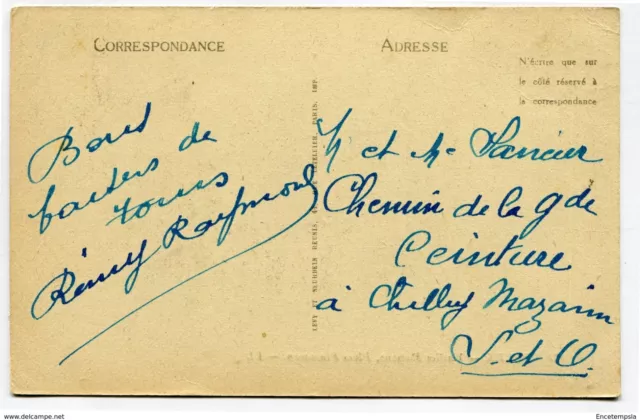 CORRESPONDANCE
Bons
baisers de
tours
Rémy Raymond
LEVY ET NEURDEIN REUNIS PARIS. IMP.
ADRESSE
N'écrire que sur
le côté réservé à
la correspondance
M et Me
Chemin de la gde
Ceinture
à Chilly Mazarin
S. et O.
www.delcampe.net
Encetempsla